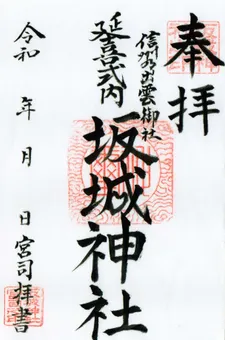 奉拝
信州出雲御社
延喜式内
坂城神社
令和 年 月 日
宮司拝書